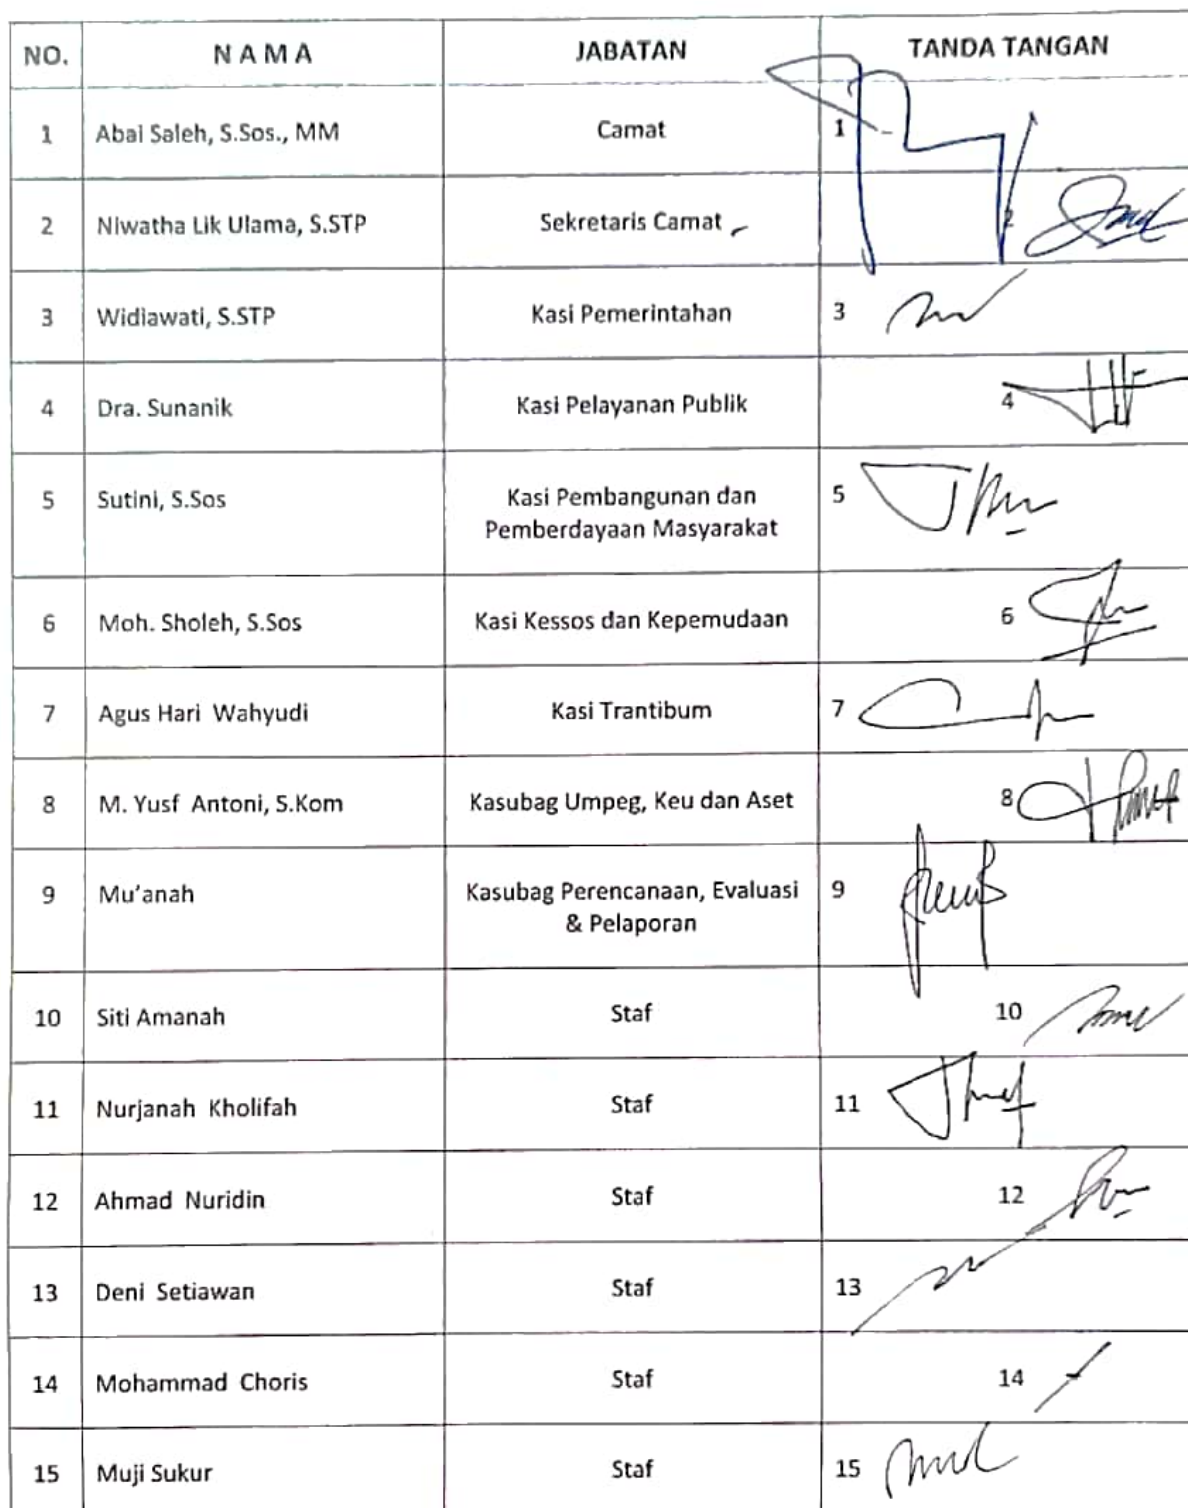 NO. N A M A JABATAN TANDA TANGAN
1 Abai Saleh, S.Sos., MM Camat 1
2 Niwatha Lik Ulama, S.STP Sekretaris Camat 2
3 Widiawati, S.STP Kasi Pemerintahan 3
4 Dra. Sunanik Kasi Pelayanan Publik 4
5 Sutini, S.Sos Kasi Pembangunan dan 5
Pemberdayaan Masyarakat
6 Moh. Sholeh, S.Sos Kasi Kessos dan Kepemudaan 6
7 Agus Hari Wahyudi Kasi Trantibum 7
8 M. Yusf Antoni, S.Kom Kasubag Umpeg, Keu dan Aset 8
9 Mu'anah Kasubag Perencanaan, Evaluasi 9
& Pelaporan
10 Siti Amanah Staf 10
11 Nurjanah Kholifah Staf 11
12 Ahmad Nuridin Staf 12
13 Deni Setiawan Staf 13
14 Mohammad Choris Staf 14
15 Muji Sukur Staf 15